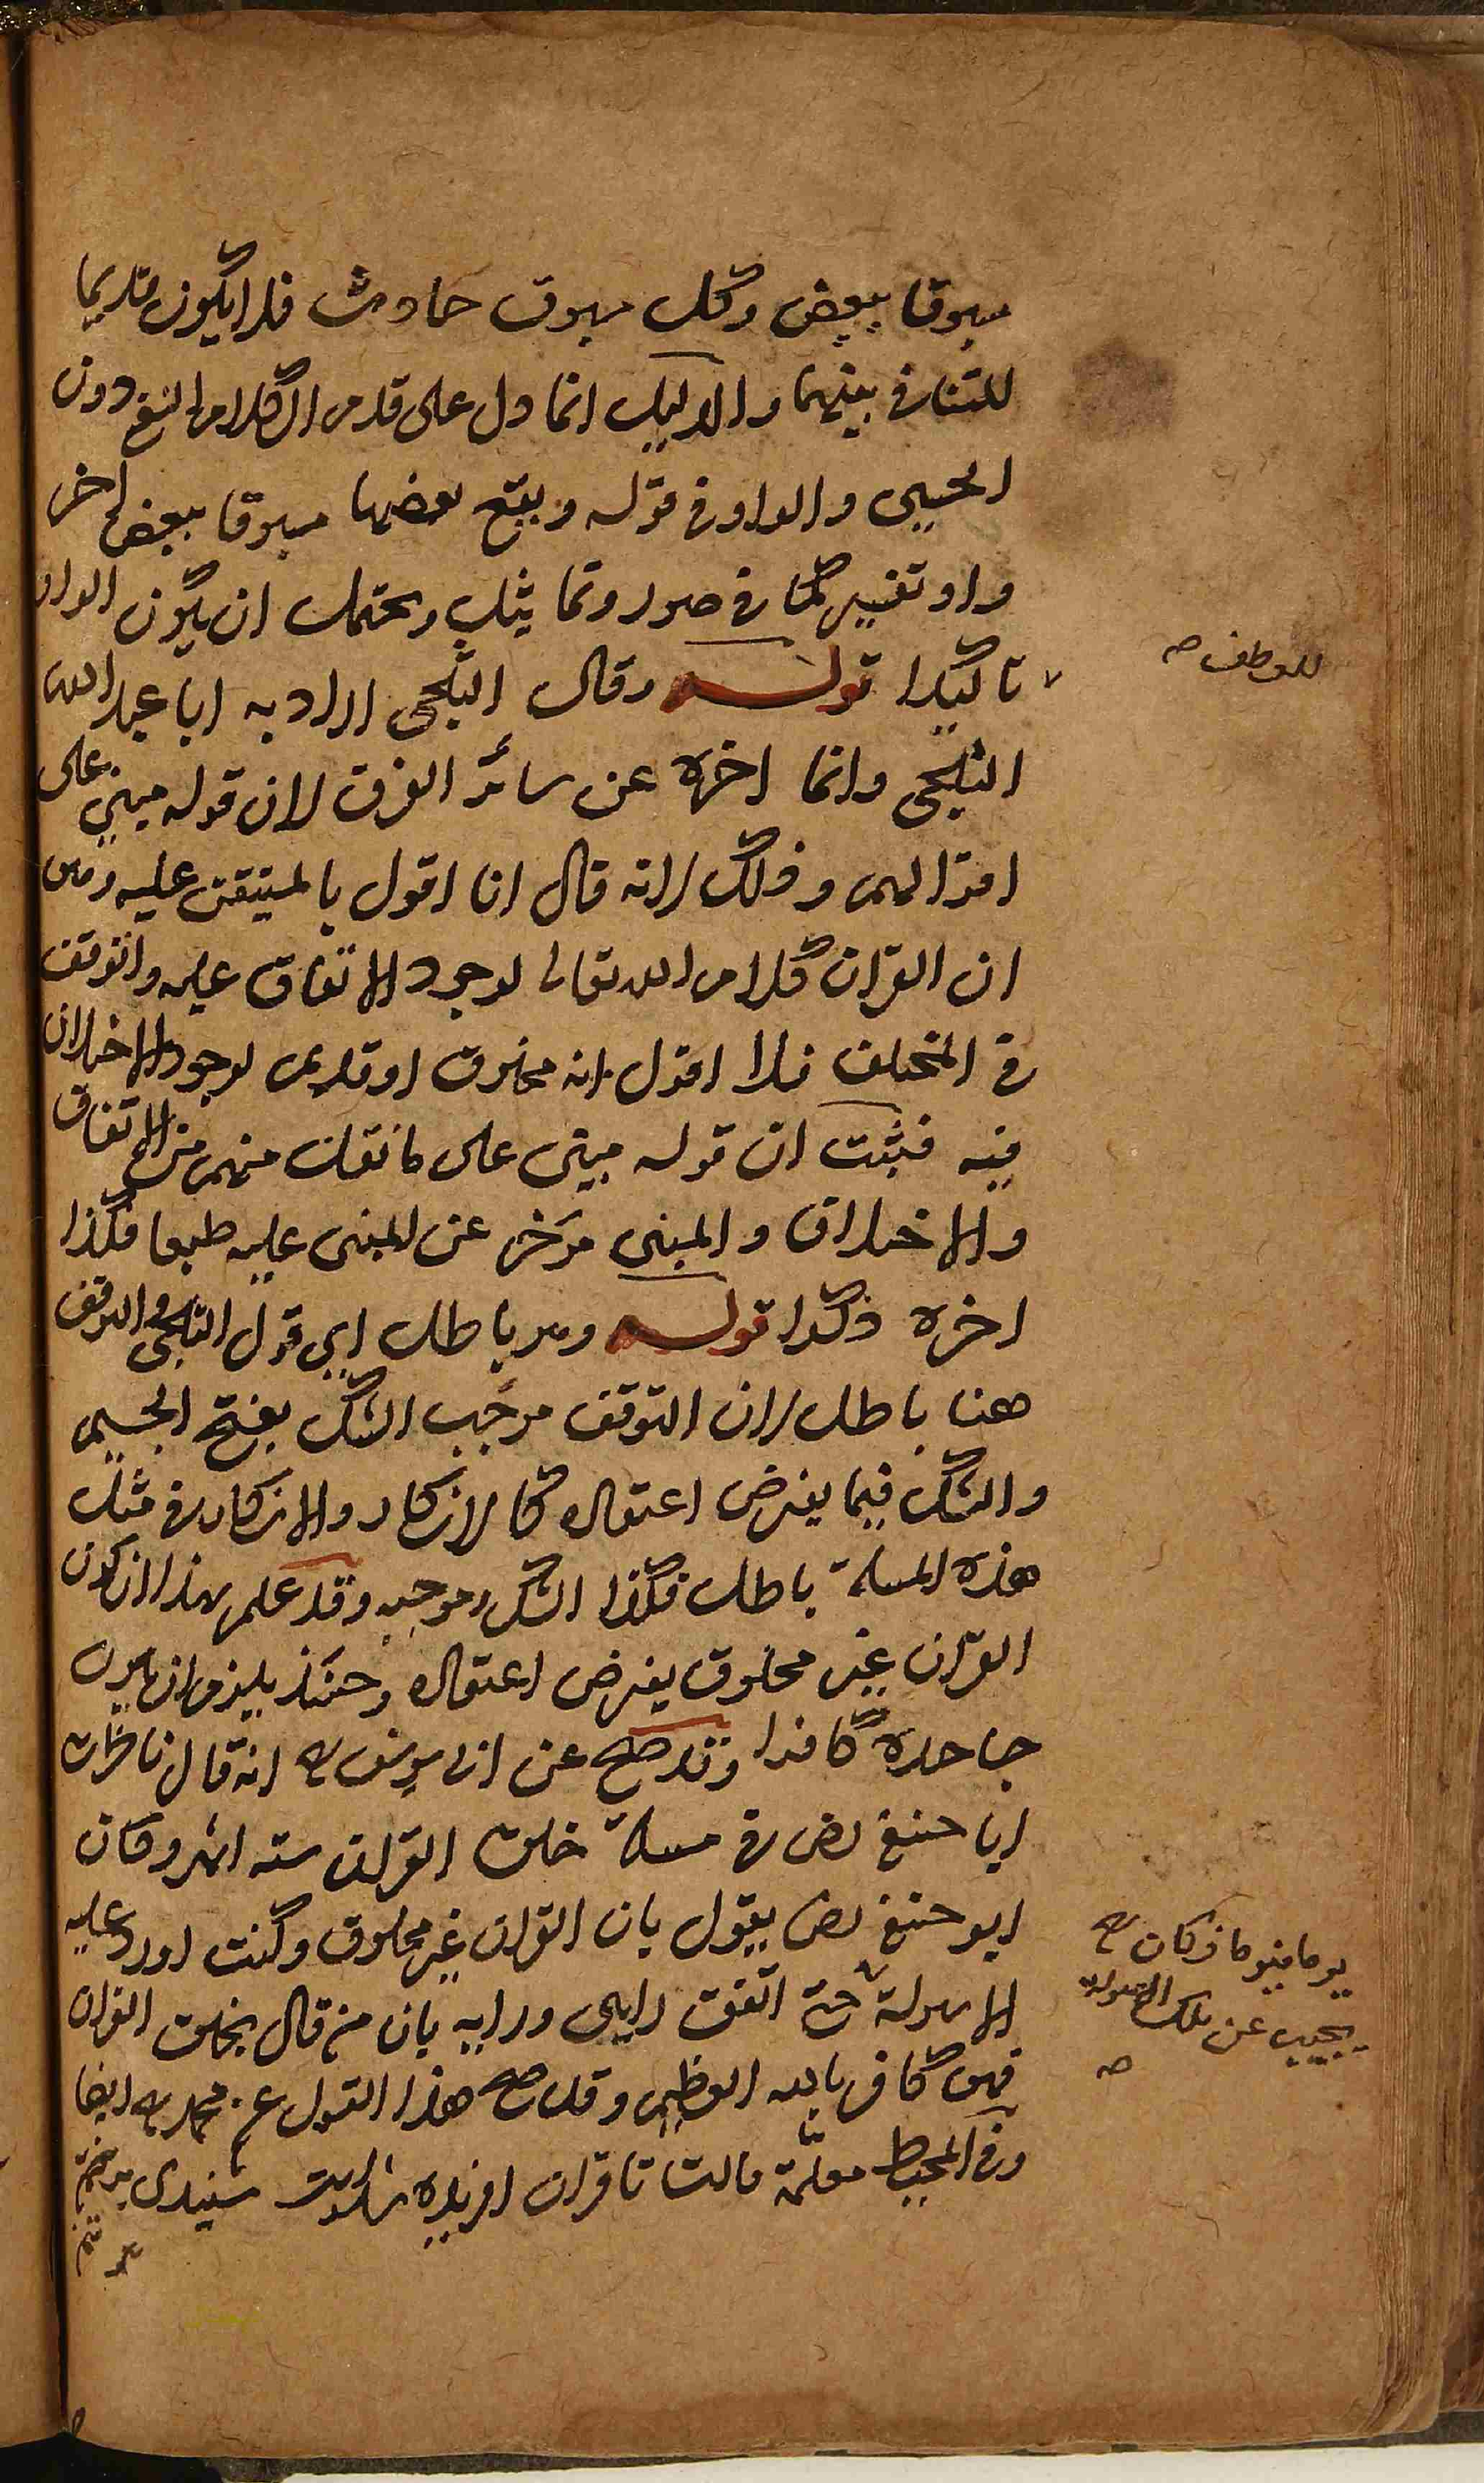 مسبوقا ببعض وكل مسبوق حادث فلا يكون قديما
للتنافي بينهما والدليل انما دل على قدم الكلام النفسي دون
الحسي والواو في قوله ويقع بعضها مسبوقا ببعض اخر
واو تفسير كما في صور وتماثيل ويحتمل ان يكون الواو
للعطف صح
تاكيدا قوله وقال الثلجي اراد به ابا عبد الله
الثلجي وانما اخره عن سائر الفرق لان قوله مبني على
اقوالهم وذلك لانه قال انا اقول بالمتيقن عليه وهو
ان القران كلام الله تعالى لوجود الاتفاق عليه واتوقف
في المختلف فلا اقول انه مخلوق او قديم لوجود الاختلاف
فيه فثبت ان قوله مبني على ما نقل منهم من الاتفاق
والاختلاف والمبني مؤخر عن المبني عليه طبعا فكذا
اخره ذكرا قوله وهو باطل اي قول الثلجي والتوقف
هنا باطل لان التوقف موجب الشك بفتح الجيم
والشك فيما يفترض اعتقاده كالانكار والانكار في مثل
هذه المسئلة باطل فكذا الشك وموجبه وقد علم بهذا ان كون
القران غير مخلوق يفترض اعتقاده وحينئذ يلزم ان يكون
جاحده كافرا وقد صح عن ابي يوسف رح انه قال ناظرت
ابا حنيفة رض في مسئلة خلق القران ستة اشهر وكان
ابو حنيفة رض يقول بان القران غير مخلوق وكنت اورد عليه
الاسولة حتى اتفق رايي ورايه بان من قال بخلق القران
يوما فيوما وكان رح
يجيب عن تلك الاسولة
صح
فهو كافر بالله العظيم وقد صح هذا القول عن محمد رح ايضا
وفي المحيط معلمة قالت تا قران افريده شده است سيندي